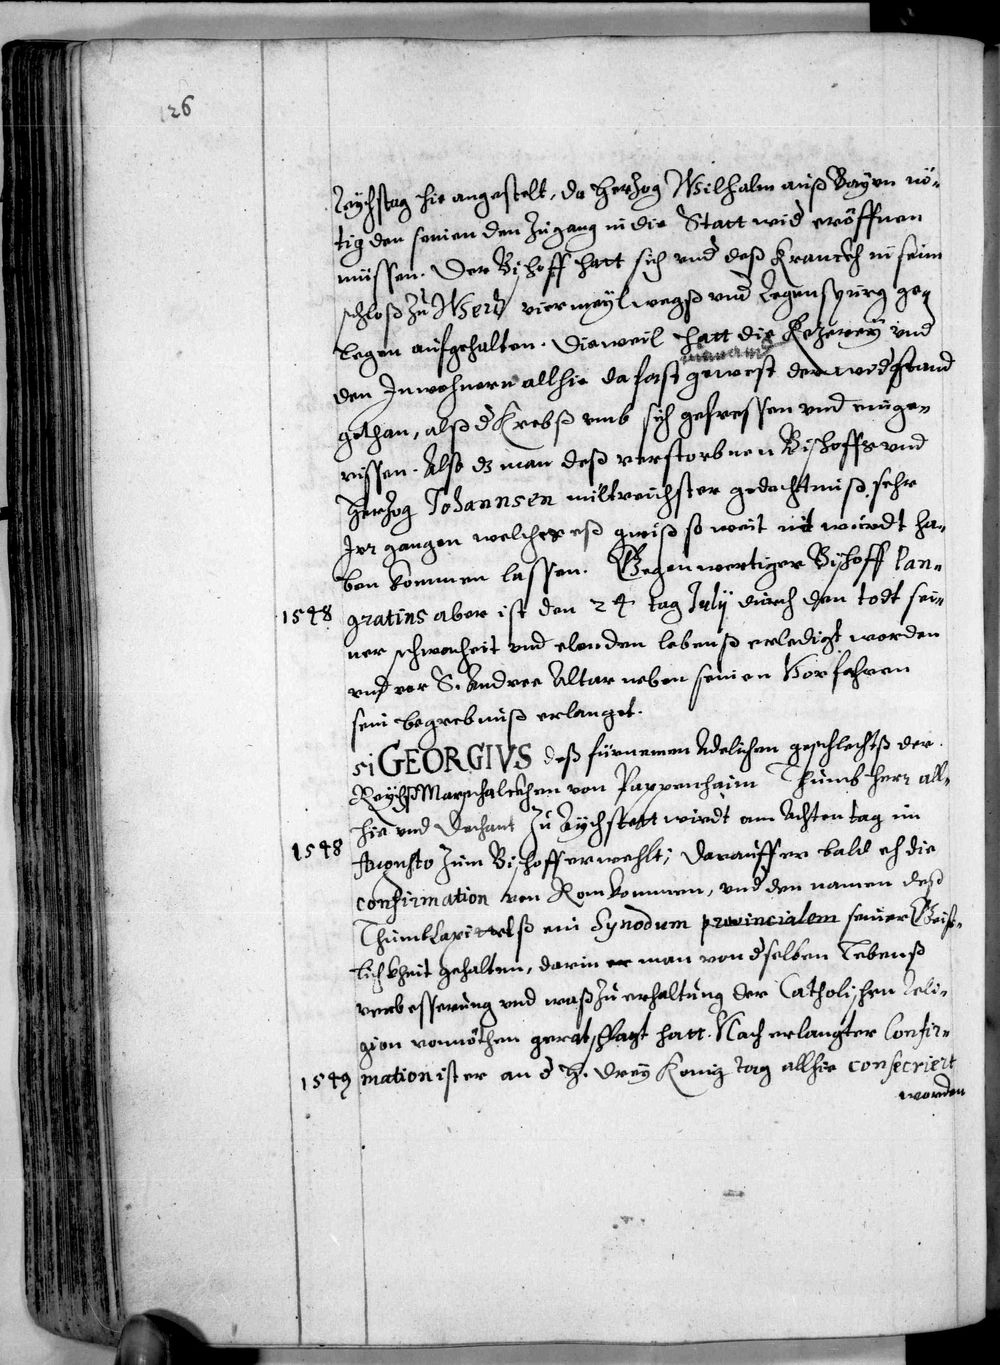 126
Reychstag hie angestelt, da Herzog Wilhalm auß Bayrn nö-
tig den seinen den Zugang in die Statt wid eröffnen
müssen. Der Bischoff hatt sich und deß Kranckh in seim
schloß zu Werd vier meyl wegß und Regenspurg ge-
legen aufgehalten. Dieweil hatt die Kezerey und
niemand
den Inwohnern allhie da fast gewest der widstand
gethan, alß d Krebß umb sich gefressen und einge-
rissen. Also dz man deß verstorbnen Bischoffs und
Herzog Johannsen miltreichster gedechtniß sehr
Irr gangen welcher eß gwiß so weit nit würdt ha-
ben kommen lassen. Gegenwertiger Bischoff Pan-
1548 gratius aber ist den 24 tag July durch den todt sei-
ner schwacheit und elenden lebenß erledigt worden
und vor S. Andree Altar neben seinen Vorfahren
sein begrebniß erlanget.
51 GEORGIVS deß fürnemen Adelichen geschlechtß der
Reychß Marschalckhen von Pappenhaim Thumbherr all-
hie und Dechant zu Aychstett wirdt am Achten tag im
1548 Augusto zum Bischoff erwehlt; darauff er bald eh die
confirmation von Rom kommen, und den namen deß
Thumb Capittelß ein Synodum provincialem seiner Geist-
lichkheit gehalten, darin er man von dselben Lebenß
verbesserung und waß zu erhaltung der Catholischen Reli-
gion vonnöthen gerathschlagt hatt. Nach erlangter Confir-
1549 mation ist er an d H. Drey König tag allhie consecriert
worden